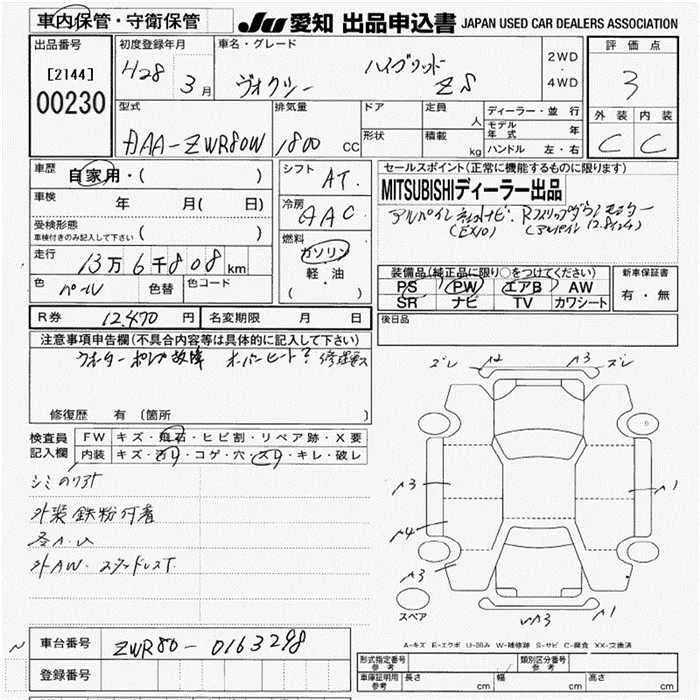 車内保管・守衛保管
JU 愛知 出品申込書 JAPAN USED CAR DEALERS ASSOCIATION
出品番号
[2144]
00230
初度登録年月
H28 3月
車名・グレード
ヴォクシー ハイブリッド ZS
2WD
・
4WD
評価点
3
外装 内装
C C
型式
DAA-ZWR80W
排気量
1800 cc
ドア
形状
定員 人
積載 kg
ディーラー・並行
モデル年式 年
ハンドル 左・右
車歴
自家用・( )
車検 年 月( 日)
受検形態
車検付きのみ記入して下さい ( )
走行
13万6千808km
色 パール 色替 色コード
シフト
AT
冷房
AAC
燃料
ガソリン
軽・油
( )
セールスポイント(正常に機能するものに限ります)
MITSUBISHIディーラー出品
アルパイン ナビ・Rフリップダウンモニター
(EX10) (アルパイン12.8インチ)
装備品(純正品に限り○をつけてください)
PS PW エアB AW
SR ナビ TV カワシート
新車保証書
有・無
R券 12,470円 名変期限 月 日
後日品
注意事項申告欄(不具合内容等は具体的に記入して下さい)
ウォーターポンプ故障 オーバーヒート? 修理要ス
修復歴 有(箇所 )
検査員
記入欄
FW キズ・飛石・ヒビ割・リペア跡・X要
内装 キズ・汚レ・コゲ・穴・スレ・キレ・破レ
シミ のり跡
外装 鉄粉付着
各A.U
外AW・スタッドレスT
ズレ A2 A3 ズレ
A3 A1
A4
A3 A1
A3
スペア
A-キズ E-エクボ U-凹み W-補修跡 S-サビ C-腐食 XX-交換済
車台番号 ZWR80-0163298
登録番号
形式指定番号
参考
類別区分番号
参考
車庫証明用
参考
長さ cm 幅 cm 高さ cm